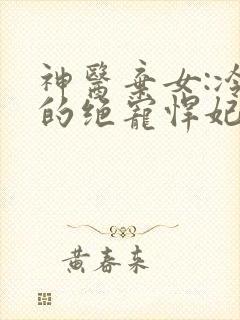 神醫棄女:冷
的绝寵悍妃
黄春来